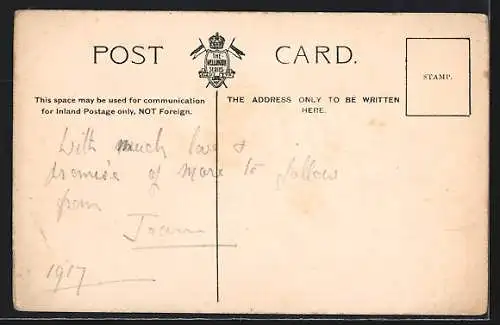 POST CARD.
THE WELLINGTON SERIES
STAMP.
This space may be used for communication
for Inland Postage only, NOT Foreign.
THE ADDRESS ONLY TO BE WRITTEN
HERE.
With much love &
promise of more to follow
from
1917